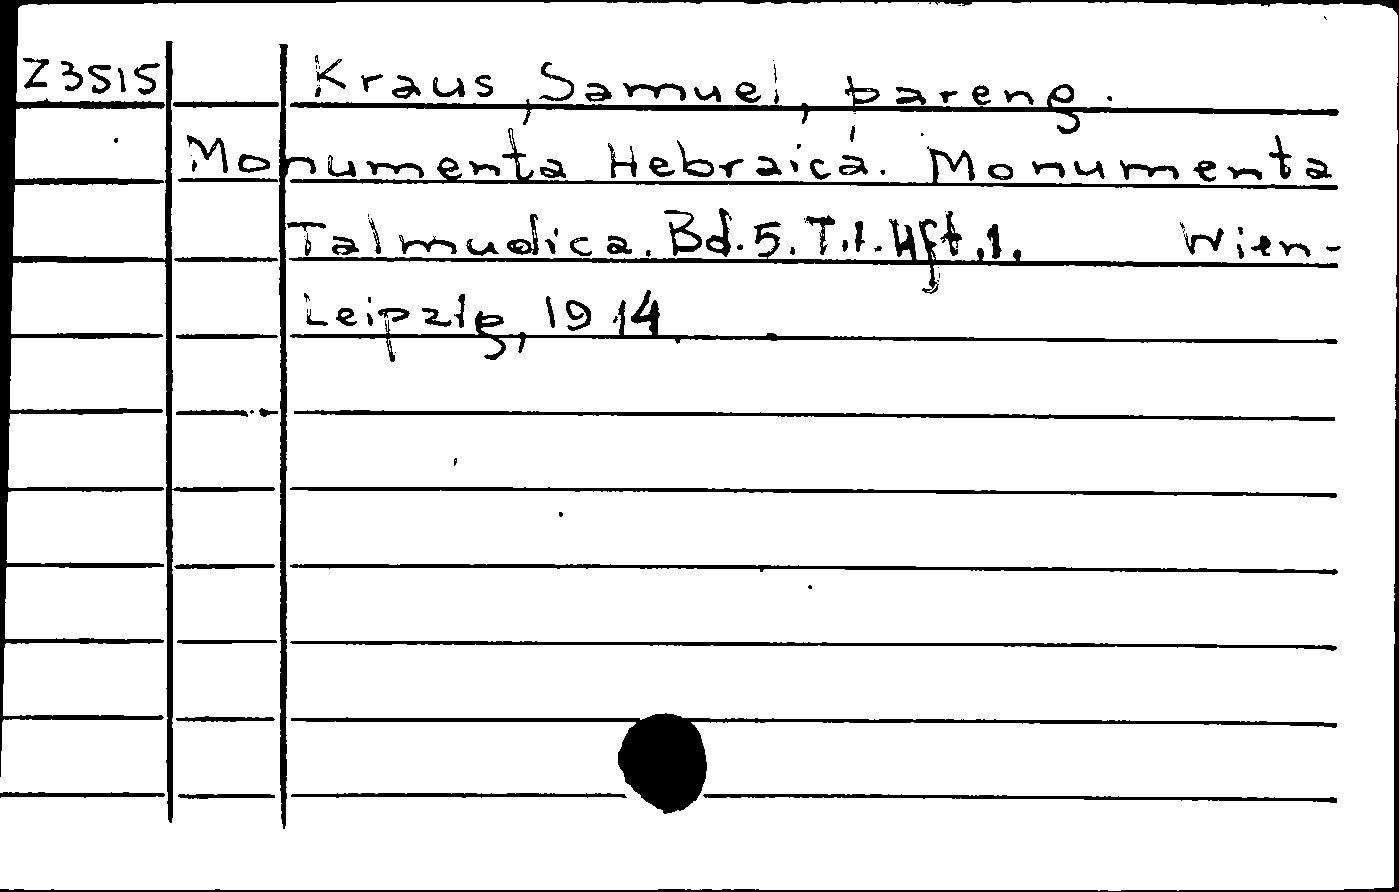 Z3515 Kraus, Samuel, pareng.
Monumenta Hebraica. Monumenta
Talmudica. Bd. 5. T.1. Hft. 1. Wien-
Leipzig, 1914